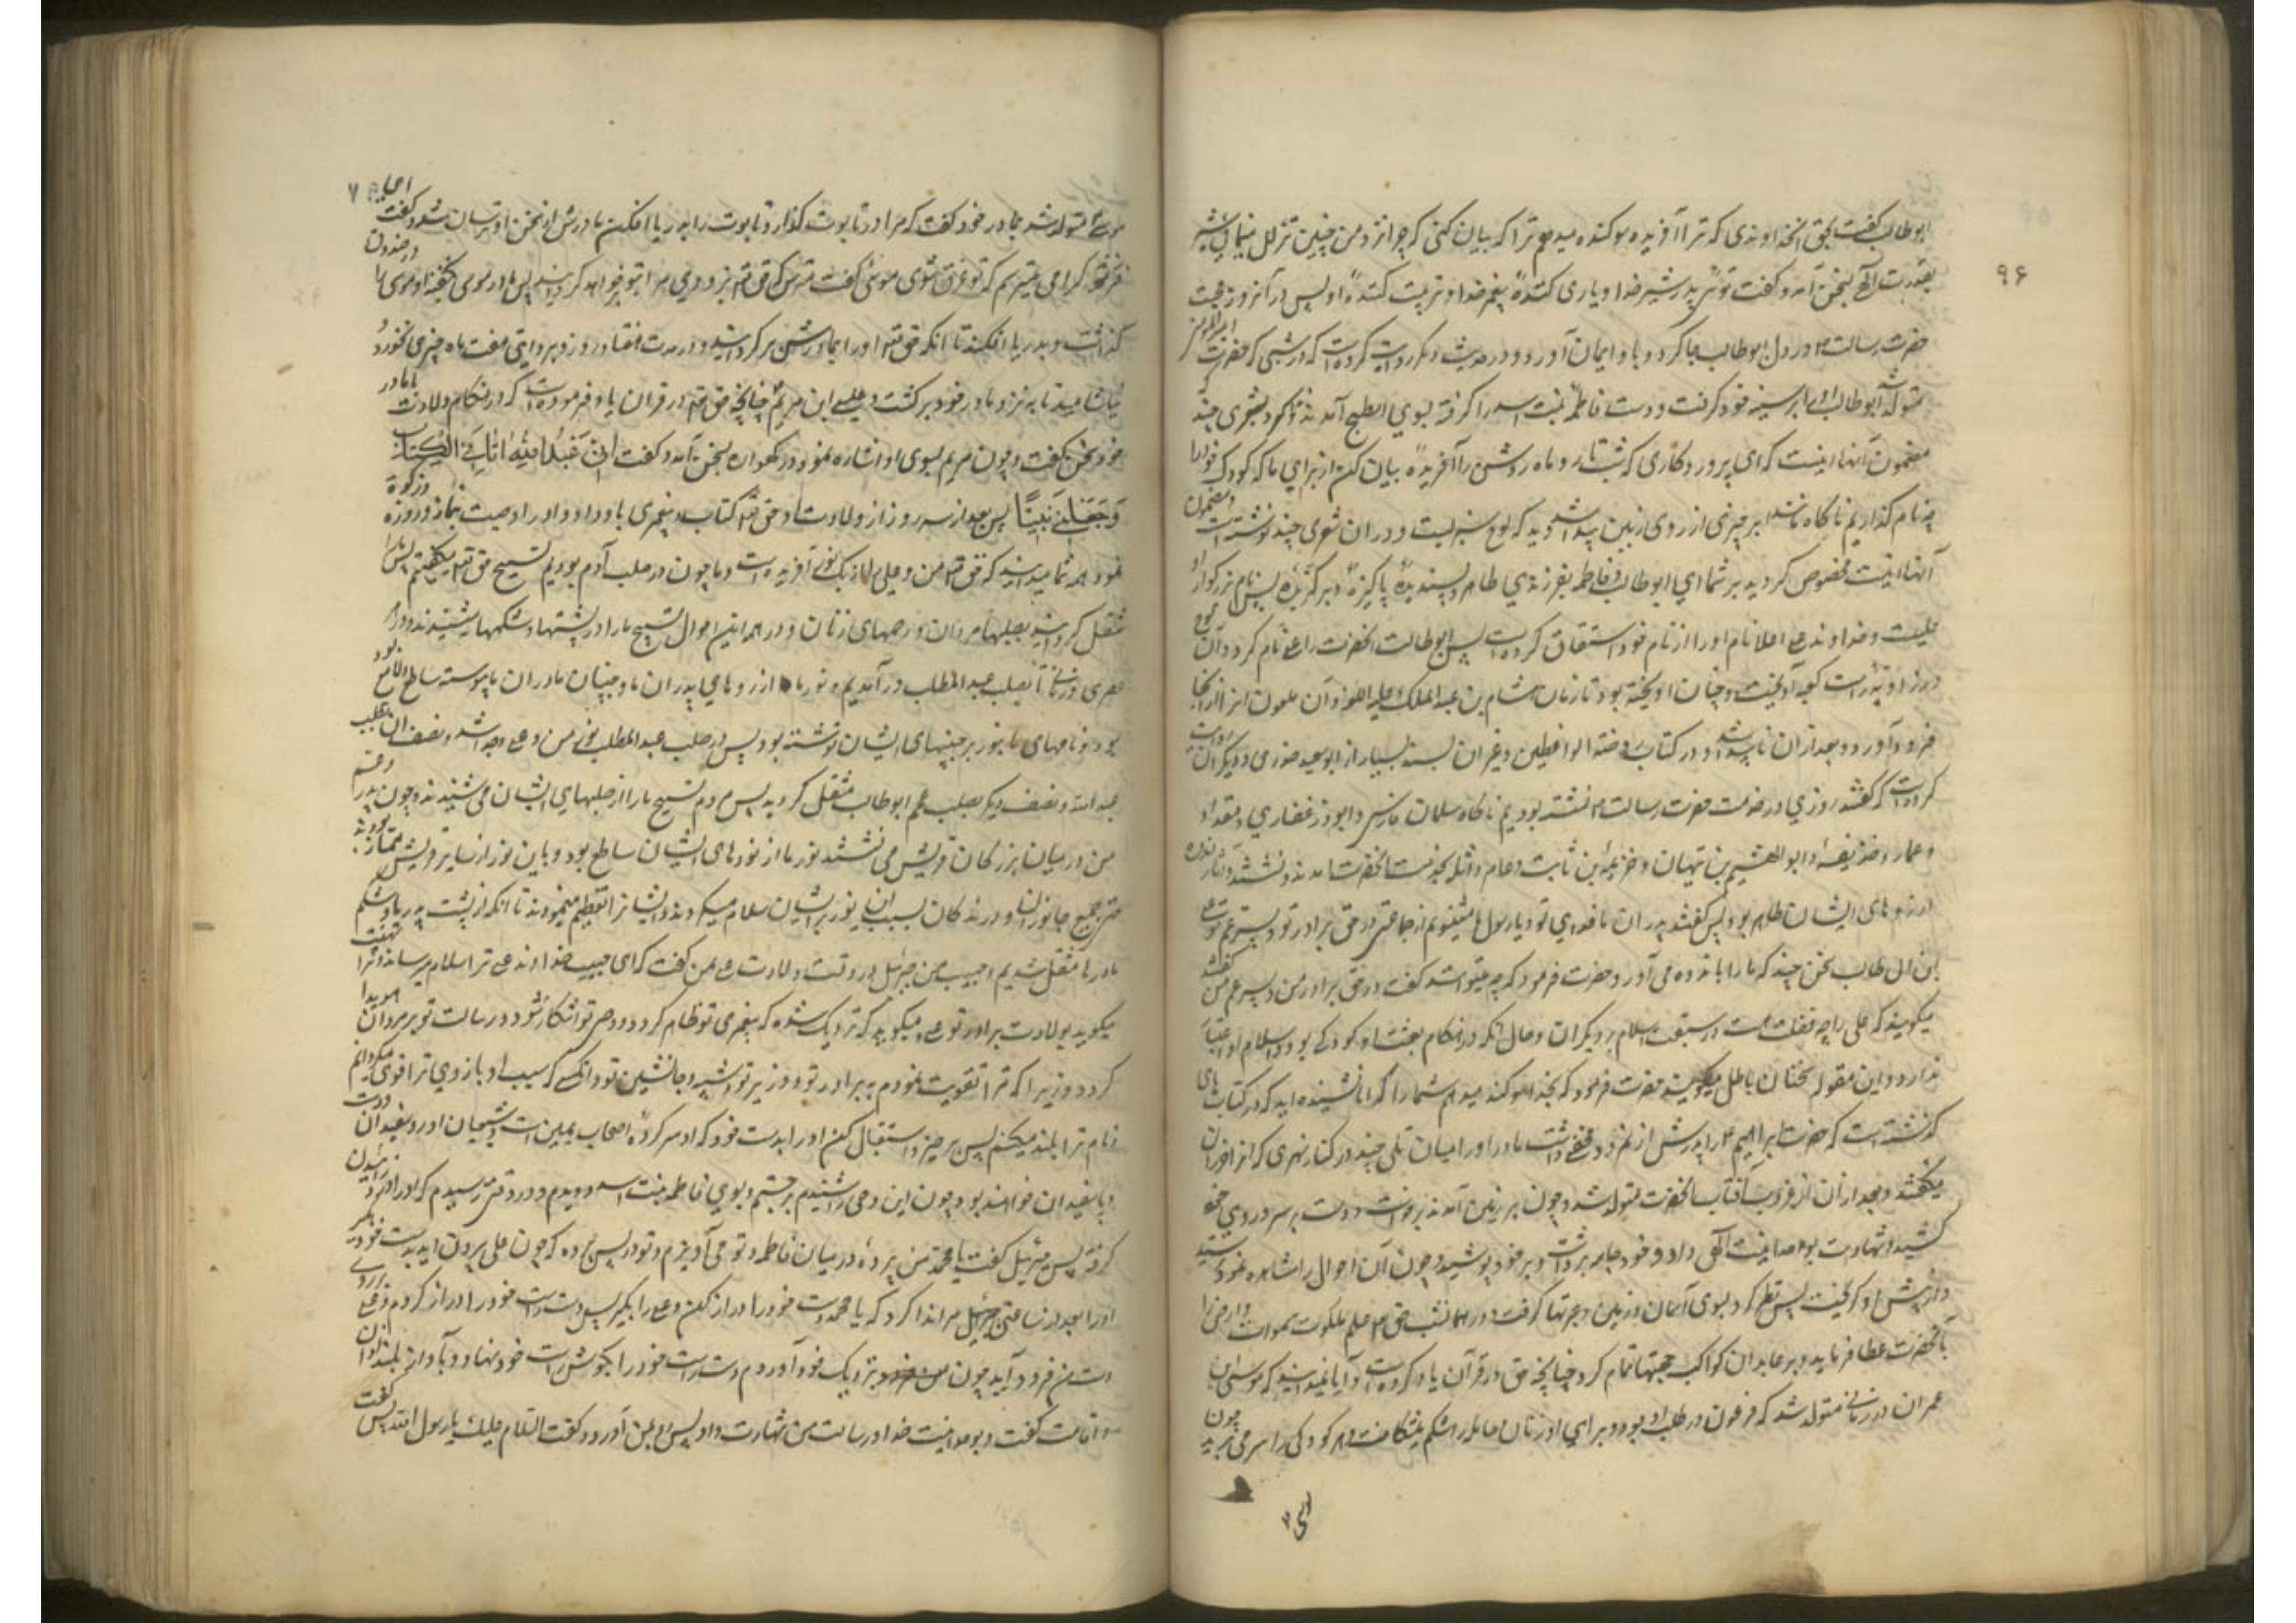 ۹۶
ابوطالب گفت بحق آنخداوندی که ترا آفریده سوکند میدهم ترا که بیان کنی که چرا نزد من چنین تزلزل مینمائی شیر
بقدرت الهی بسخن آمد و گفت توئی پدر شیر خدا و یاری کنندهٔ پیغمبر خدا و تربیت کنندهٔ او پس در آنروز محبت
حضرت رسالت در دل ابوطالب جا کرد و باو ایمان آورد و در حدیث دیگر روایت کرده است که در شبی که حضرت امیرالمؤمنین
متولد شد ابوطالب او را بر سینه خود گرفت و دست فاطمه بنت اسد را گرفته بسوی ابطح آمدند و شعری چند
مضمون آنها اینست که ای پروردکاری که شب تار و ماه روشن را آفریدهٔ بیان کن از برای ما که کودک خود را
چه نام گذاریم ناکاه مانند ابر چیزی از روی زمین پیدا شد دید که لوح سبزیست و در ان شعری چند نوشته است و مضمون
آنها اینست مخصوص کردید بر شما ای ابوطالب و فاطمه بفرزندی طاهر و پسندیدهٔ پاکیزهٔ و برگزیدهٔ پس نام بزرکوار او
علیست و خداوند علی اعلا نام او را از نام خود اشتقاق کرده است پس ابوطالب آنحضرت را علی نام کرد و آن لوح
در زاویه راست کعبه آویخت و چنان آویخته بود تا زمان هشام بن عبدالملک علیه اللعنه و آن ملعون انرا از آنجا
فرود آورد و بعد از ان ناپیدا شد و در کتاب روضة الواعظین و غیر ان بسند بسیار از ابوسعید خدری و دیگران روایت
کرده است که گفتند روزی در خدمت حضرت رسالت نشسته بودیم ناکاه سلمان فارسی و ابوذر غفاری و مقداد
و عمار و حذیفه و ابوالهیثم بن تیهان و خزیمه بن ثابت و عامر واثله بخدمت آنحضرت آمدند و نشستند و آثار اندوه
از روهای ایشان ظاهر بود پس گفتند پدران ما فدای تو باد یا رسول الله میشنویم از جماعتی در حق برادر تو و پسر عم تو علی
بن ابی طالب سخنی چند که ما را باندوه می آورد حضرت فرمود که چه میتوانند گفت در حق برادر من و پسر عم من گفتند
میکویند که علی را چه فضیلت است در سبقت اسلام بر دیکران و حال آنکه در هنکام بعثت او کودکی بود و اسلام او اعتبار
ندارد و این مقوله سخنان باطل میکویند حضرت فرمود که بخدا سوکند میدهم شما را که آیا شنیده اید که در کتابهای
گذشته است که حضرت ابراهیم را پدرش از نمرود مخفی داشت مادر او را میان تلی چند در کنار نهری که انرا خوران
میگفتند و بعد از آن از غروب آفتاب آنحضرت متولد شد و چون بر زمین آمد برخاست و دست بر سر و روی خود
کشید و شهادت بوحدانیت الهی داد و خود جامه برداشت و بر خود پوشید و چون آن احوال را مشاهده نمود ترسید
و از پیش او گریخت پس نظر کرد بسوی آسمان و زمین و عبرتها گرفت و در همانشب حق تع علم ملکوت سموات و ارض را
بآنحضرت عطا فرماید و بر عابدان کواکب حجتها تمام کرد چنانچه حق در قرآن یاد کرده است و آیا نمیدانید که موسی بن
عمران در زمانی متولد شد که فرعون در طلب او بود و برای او زنان حامله را شکم میشکافت و هر کودکی را سر می برید چون
موسی
موسی متولد شد بمادر خود گفت که مرا در تابوت گذار و تابوت را بدریا افکن مادرش از سخن او ترسان شد و گفت
فرزند گرامی میترسم که تو غرق شوی موسی گفت مترس که حق تع بزودی مرا بتو خواهد گردانید پس مادر موسی او را در صندوق
گذاشت و بدریا افکند تا آنکه حق تع او را بمادرش برگردانید و در مدت هفتاد روز و بروایتی هفت ماه چیزی نخورد و
نیاشامید تا بنزد مادر خود برگشت و عیسی ابن مریم چنانچه حق تع در قران یاد فرموده است که در هنکام ولادت با مادر
خود سخن گفت و چون مریم بسوی او اشاره نمود در گهواره بسخن آمد و گفت انی عَبْدُ اللهِ اتانِیَ الْکِتابَ
وَ جَعَلَنی نَبِیًّا پس بعد از سه روز از ولادت او حق تع کتاب و پیغمبری باو داد و او را وصیت بنماز و روزه و زکوة
نمود همه شما میدانید که حق تع من و علی را از یک نور آفریده است و ما چون در صلب آدم بودیم تسبیح حق تع میکفتیم پس ما را
منتقل گردانید بصلبها مردان و رحمهای زنان و در همه این احوال تسبیح ما را در پشتها و شکمها میشنیدند و در هر
عصری و زمانی تا بصلب عبدالمطلب در آمدیم و نور ما از روهای پدران ما و جبینان مادران ما پیوسته ساطع و لامع بود
و نامهای ما بنور بر جبینهای ایشان نوشته بود پس در صلب عبدالمطلب نور من و علی جدا شد و نصف ان بصلب
عبدالله و نصف دیگر بصلب عمم ابوطالب منتقل گردید پس مردم تسبیح ما را از صلبهای ایشان می شنیدند و چون پدرم و عمم
من در میان بزرکان قریش می نشستند نور ما از نور دهای ایشان ساطع بود و باین نور از سایر قریش ممتاز بودند
حتی جمیع جانوران و درندکان بسبب این نور بر ایشان سلام میکردند و ایشانرا تعظیم مینمودند تا آنکه از پشت پدر و شکم
مادرها منتقل شدیم و حبیب من جبرئیل در وقت ولادت علی بمن گفت که ای حبیب خدا خداوند علی ترا سلام میرساند و ترا تهنیت
میکوید بولادت برادر تو علی و میکوید که نزدیک شده که پیغمبری تو ظاهر کردد و وحی تو آشکار شود و رسالت تو بر مردمان هویدا
کردد زیرا که ترا تقویت نمودم ببرادر تو و وزیر تو و شبیه و جانشین تو و آنکسی که بسبب او بازوی ترا قوی میکردانم
و نام ترا بلند میکنم پس برخیز و استقبال کن او را بدست خود که او سرکردهٔ اصحاب یمین است و شیعیان او رو سفیدان دست
و پا سفیدان خواهند بود چون این وحی را شنیدم برجستم و بسوی فاطمه بنت اسد دویدم و در وقتی رسیدم که او را درد زائیدن
گرفته پس جبرئیل گفت یا محمد من پردهٔ در میان فاطمه و تو می آویزم و تو در پس پرده که چون علی بیرون آید بدست خود بگیر
او را بعد از ساعتی جبرئیل مرا ندا کرد که یا محمد دست خود را دراز کن و علی را بگیر پس دست راست خود را دراز کردم و علی بر روی
دست من فرود آید چون بنزدیک خود آوردم دست راست خود را بگوش راست خود نهاد و بآواز بلند اذان
و اقامت گفت و بوحدانیت خدا و رسالت من شهادت داد پس رو بمن آورد و گفت السلام علیک یا رسول الله پس گفت